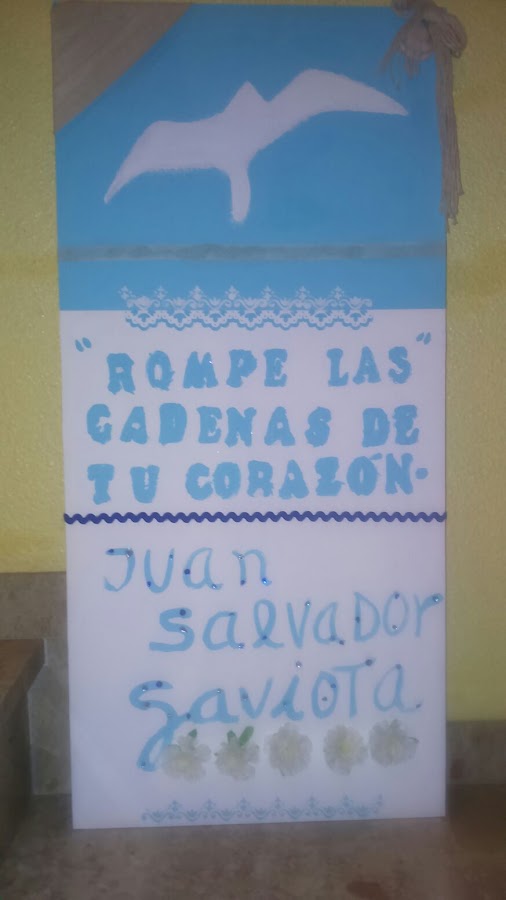 "ROMPE LAS"
CADENAS DE
TU CORAZÓN.
Juan
Salvador
gaviota